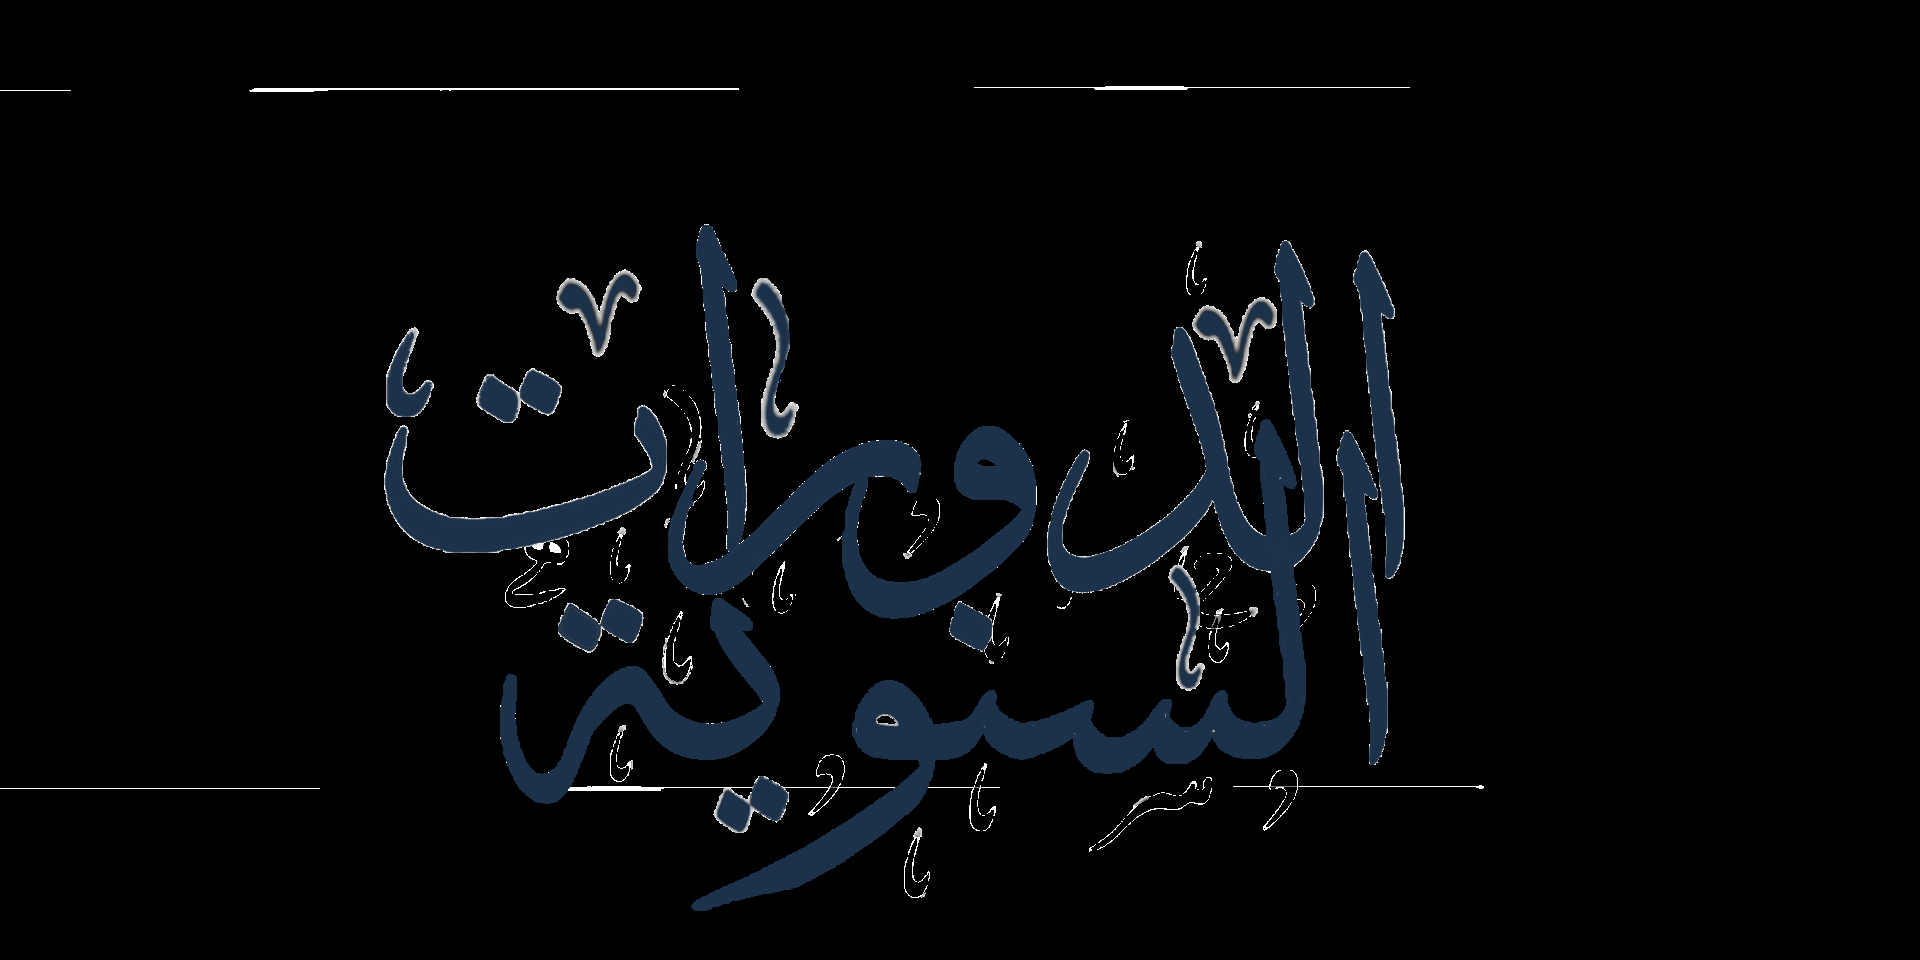 الدورات
السنوية